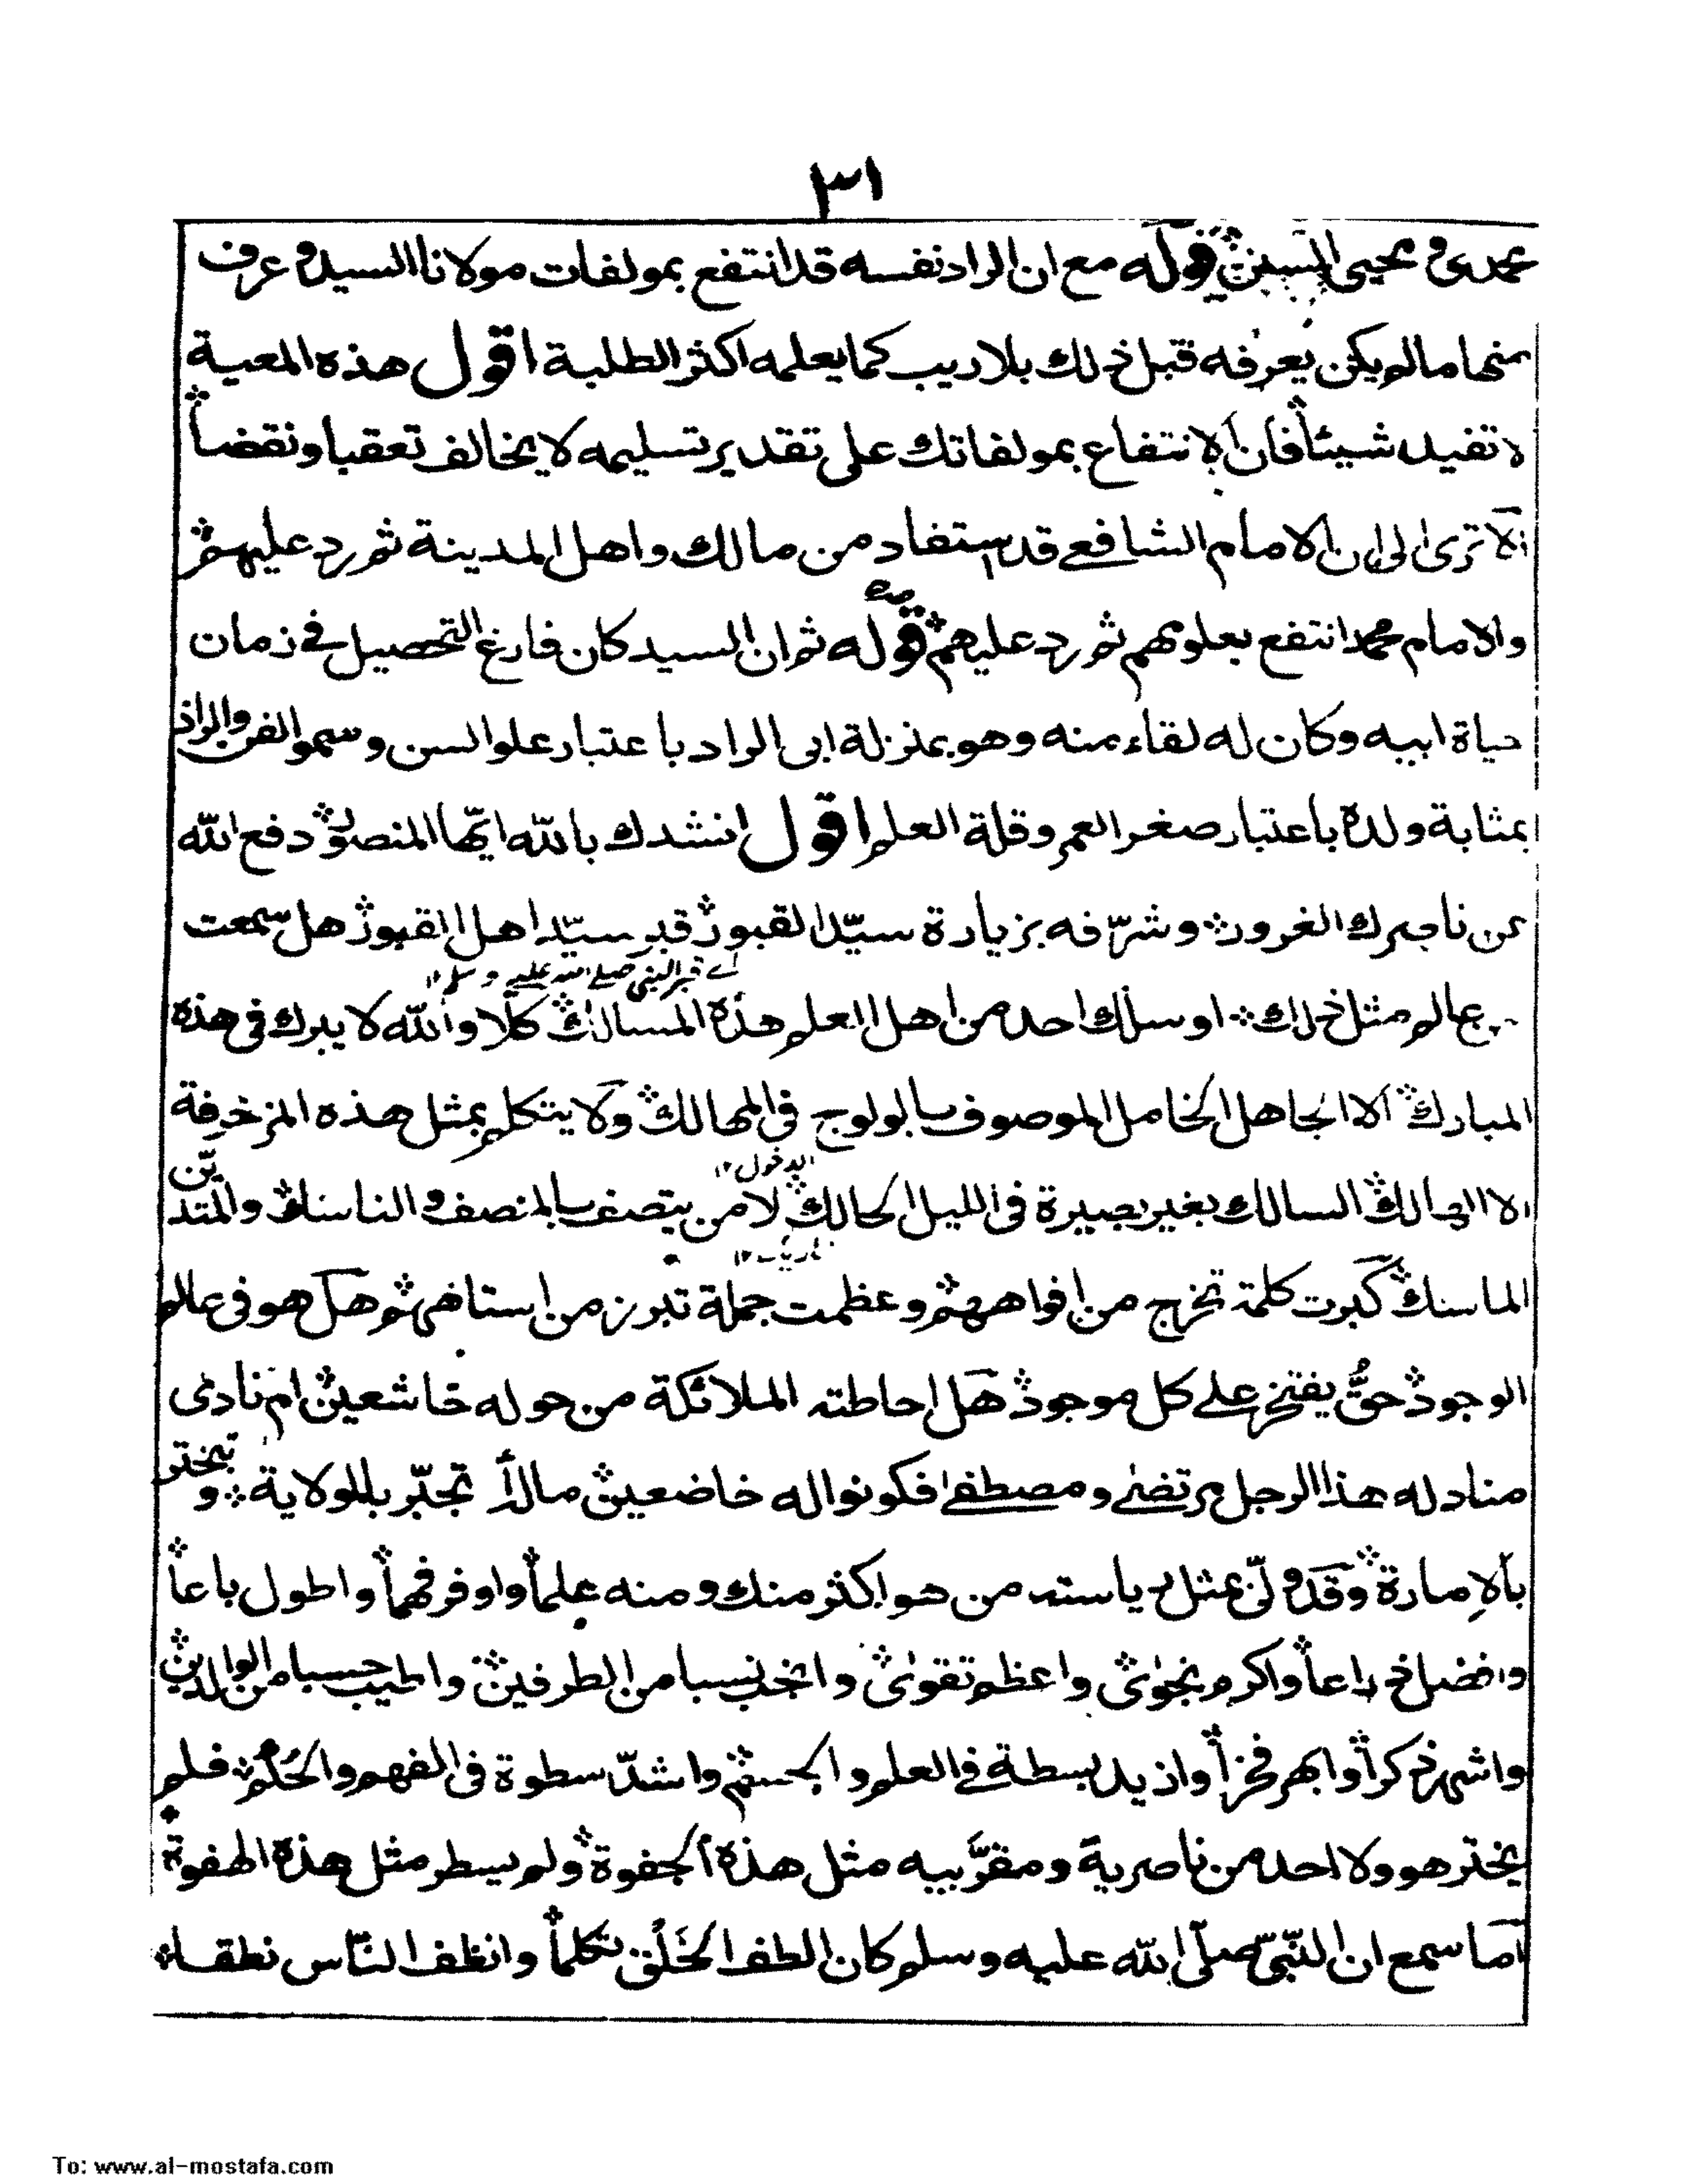 ٣١
محمدى ومحيى السنن قوله مع ان الراد نفسه قد انتفع بمولفات مولانا السيد وعرف
منها مالم يكن يعرفه قبل ذلك بلا ريب كما يعلمه اكثر الطلبة اقول هذه المعية
لا تفيد شيئاً فان الانتفاع بمولفاتك على تقدير تسليمه لا يخالف تعقبا ونقضاً
الا ترى الى ان الامام الشافعے قد استفاد من مالك واهل المدينة ثم رد عليهم
والامام محمد انتفع بعلومهم ثم رد عليهم قوله ثم ان السيد كان فارغ التحصيل فے زمان
حياة ابيه وكان له لقاء منه وهو بمنزلة ابى الراد باعتبار علو السن وسمو الفن والراد
بمثابة ولده باعتبار صغر العمر وقلة العلم اقول انشدك بالله ايها المنصور دفع الله
عن ناصرك الغرور وشرّفه بزيارة سيّد القبور قبر سيّد اهل القبور هل سمعت
اے قبر النبى صلے الله عليہ وسلم ١٢
عالم مثل ذلك او سلك احد من اهل العلم هذه المسالك كلّا والله لا يدرك فى هذه
المبارك الا الجاهل الخامل الموصوف بالولوج فى المهالك ولا يتكلم بمثل هذه المزخرفة
الدخول ١٢
الا الهالك السالك بغير بصيرة فى الليل الحالك لا من يتصف بالمنصف والناسك والمتديّن
تاريك ١٢
الماسك كبرت كلمة تخرج من افواههم وعظمت جملة تبرز من استاههم هل هو فى عالم
الوجود حقٌّ يفتخر علے كل موجود هل احاطته الملائكة من حوله خاشعين ام نادى
مناد له هذا الرجل مرتضى ومصطفى فكونوا له خاضعين ما لذا تجبّر بالولاية وتبختر
بالامارة وقد ولّى بمثل رياسته من هو اكثر منك ومنه علماً واوفر فهماً واطول باعاً
وافضل ذراعاً واكرم نجوى واعظم تقوى وانجب نسبا من الطرفين واطيب حسبا من الوالدين
واشهر ذكراً وابهر فخراً وازيد بسطة فے العلم والجسم واشدّ سطوة فى الفهم والحُلُم فلم
يختر هو ولا احد من ناصرية ومقرّبيه مثل هذه الجفوة ولم يسطر مثل هذه الهفوة
اما سمع ان النّبىّ صلّى الله عليه وسلم كان الطف الخَلْق تكلماً وانظف النّاس نطقا
To: www.al-mostafa.com